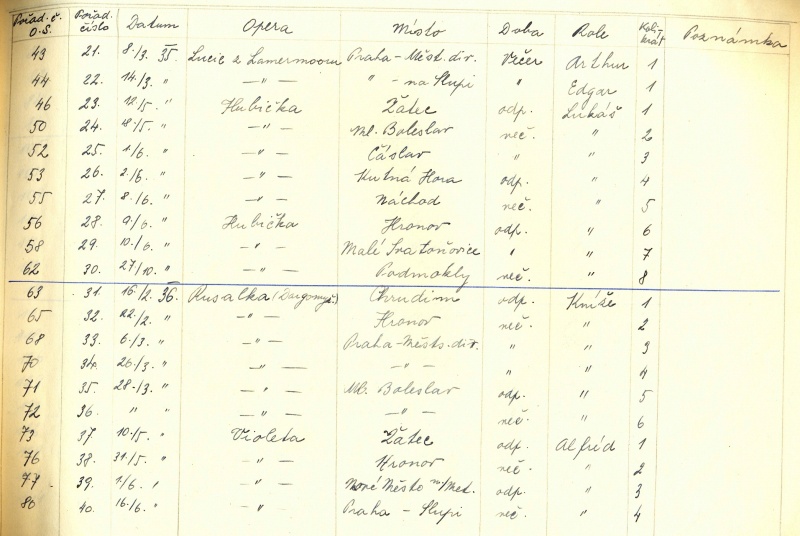 Pořad. č. O.S. Pořad. číslo Datum Opera Místo Doba Role Kolikrát Poznámka
43 21. 8./3. 35. Lucie z Lamermooru Praha - Měst. div. Večer Arthur 1
44 22. 14./3. " — " — " - na Slupi " Edgar 1
46 23. 12./5. " Hubička Žatec odp. Lukáš 1
50 24. 18./5. " — " — Ml. Boleslav več. " 2
52 25. 1/6. " — " — Čáslav " " 3
53 26. 2./6. " — " — Kutná Hora odp. " 4
55 27. 8./6. " — " — Náchod več. " 5
56 28. 9./6. " Hubička Hronov odp. " 6
58 29. 10./6. " — " — Malé Svatoňovice " " 7
62 30. 27/10. " — " — Podmokly več. " 8
63 31. 16/2. 36. Rusalka (Dargomyž.) Chrudim odp. Kníže 1
65 32. 22./2. " — " — Hronov več. " 2
68 33. 6./3. " — " — Praha - Městs. div. " " 3
70 34. 26./3. " — " — " " 4
71 35. 28./3. " — " — Ml. Boleslav odp. " 5
72 36. " " " — " — — " — več. " 6
73 37. 10./5. " Violeta Žatec odp. Alfréd 1
76 38. 31./5. " — " — Hronov več. " 2
77 39. 1/6. " — " — Nové Město n/Met. odp. " 3
80 40. 16./6. " — " — Praha - Slupi več. " 4